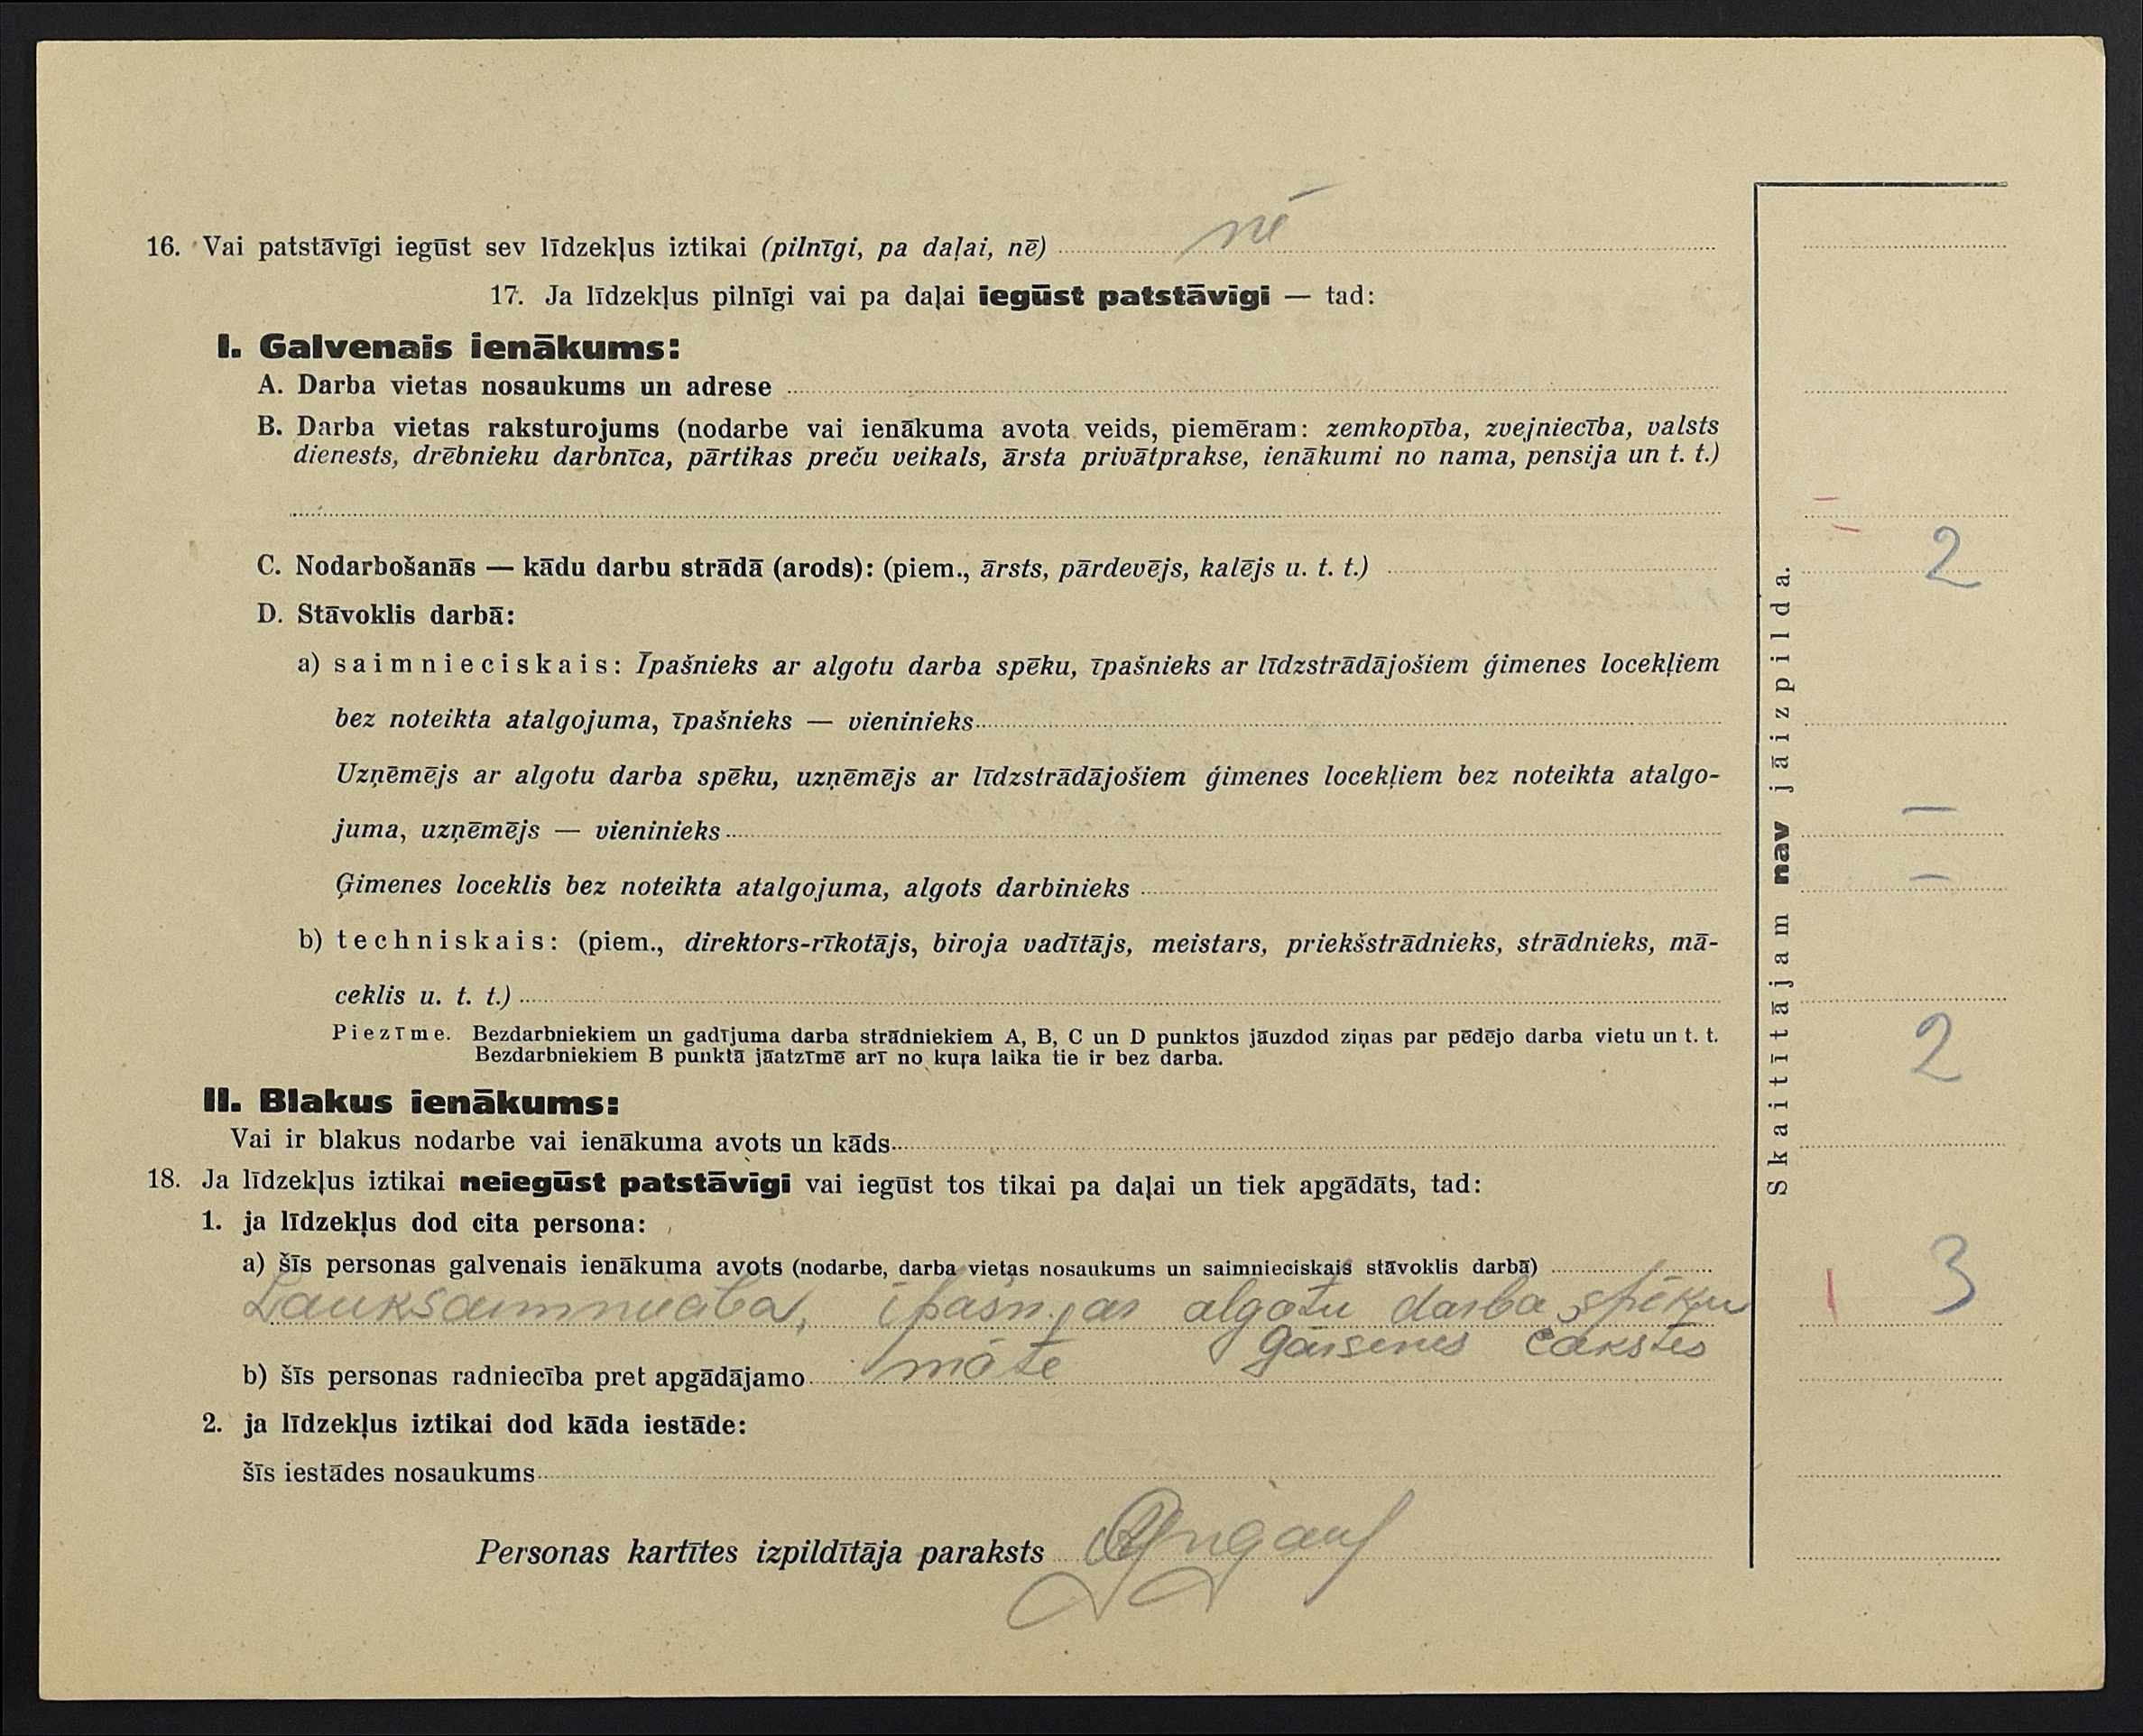 16. Vai patstāvīgi iegūst sev līdzekļus iztikai (pilnīgi, pa daļai, nē) nē
17. Ja līdzekļus pilnīgi vai pa daļai iegūst patstāvīgi — tad:
I. Galvenais ienākums:
A. Darba vietas nosaukums un adrese
B. Darba vietas raksturojums (nodarbe vai ienākuma avota veids, piemēram: zemkopība, zvejniecība, valsts
dienests, drēbnieku darbnīca, pārtikas preču veikals, ārsta privātprakse, ienākumi no nama, pensija un t. t.)
C. Nodarbošanās — kādu darbu strādā (arods): (piem., ārsts, pārdevējs, kalējs u. t. t.)
2
D. Stāvoklis darbā:
a) saimnieciskais: Īpašnieks ar algotu darba spēku, īpašnieks ar līdzstrādājošiem ģimenes locekļiem
bez noteikta atalgojuma, īpašnieks — vieninieks
Uzņēmējs ar algotu darba spēku, uzņēmējs ar līdzstrādājošiem ģimenes locekļiem bez noteikta atalgo-
juma, uzņēmējs — vieninieks
—
Ģimenes loceklis bez noteikta atalgojuma, algots darbinieks
—
b) techniskais: (piem., direktors-rīkotājs, biroja vadītājs, meistars, priekšstrādnieks, strādnieks, mā-
ceklis u. t. t.)
Piezīme. Bezdarbniekiem un gadījuma darba strādniekiem A, B, C un D punktos jāuzdod ziņas par pēdējo darba vietu un t. t.
Bezdarbniekiem B punktā jāatzīmē arī no kuŗa laika tie ir bez darba.
2
II. Blakus ienākums:
Vai ir blakus nodarbe vai ienākuma avots un kāds
18. Ja līdzekļus iztikai neiegūst patstāvīgi vai iegūst tos tikai pa daļai un tiek apgādāts, tad:
1. ja līdzekļus dod cita persona:
a) šīs personas galvenais ienākuma avots (nodarbe, darba vietas nosaukums un saimnieciskais stāvoklis darbā)
Lauksaimniecība, īpašn. ar algotu darba spēku
1 3
Gaisenes Čakstes
b) šīs personas radniecība pret apgādājamo māte
2. ja līdzekļus iztikai dod kāda iestāde:
šīs iestādes nosaukums
Personas kartītes izpildītāja paraksts
Skaitītājam nav jāizpilda.